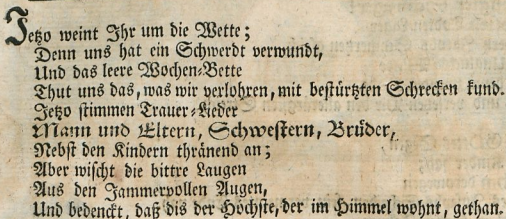 Jetzo weint Ihr um die Wette;
Denn uns hat ein Schwerdt verwundt,
Und das leere Wochen-Bette
Thut uns das, was wir verlohren, mit bestürtzten Schrecken kund.
Jetzo stimmen Trauer-Lieder
Mann und Eltern, Schwestern, Brüder,
Nebst den Kindern thränend an;
Aber wischt die bittre Laugen
Aus den Jammervollen Augen,
Und bedenckt, daß dis der Höchste, der im Himmel wohnt, gethan.